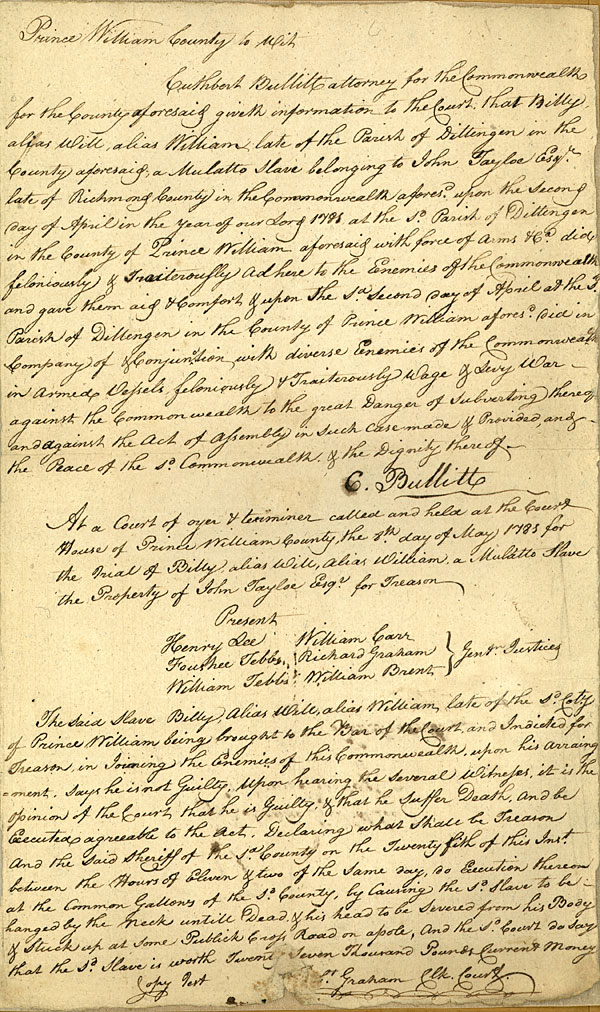 Prince William County to Wit
Cuthbert Bullitt attorney for the Commonwealth
for the County aforesaid giveth information to the Court, that Billy,
alias Will, alias William, late of the Parish of Dillingen in the
County aforesaid, a Mulatto Slave belonging to John Tayloe Esqr.
late of Richmond County in the Commonwealth afores.d upon the Second
day of April in the Year of our Lord 1781 at the s.d Parish of Dillingen
in the County of Prince William aforesaid with force of Arms &C.a did
feloniously & Traiterously Adhere to the Enemies of the Commonwealth
and gave them aid & Comfort & upon the s.d Second day of April at the s.d
Parish of Dillingen in the County of Prince William afores.d did in
Company of & Conjunction with diverse Enemies of the Commonwealth
in Armed Vessels, feloniously & Traiterously Wage & Levy War
against the Commonwealth to the great Danger of Subverting thereof
and against the Act of Assembly in such Case made & Provided, and
the Peace of the s.d Commonwealth, & the Dignity thereof
C. Bullitt
At a Court of oyer & terminer called and held at the Court
House of Prince William County, the 8th day of May 1781 for
the Trial of Billy, alias Will, alias William, a Mulatto Slave
the Property of John Tayloe Esqr. for Treason
Present
Henry Lee William Carr
Foushee Tebbs Richard Graham Gentn. Justices
William Tebbs William Brent
The said Slave Billy, Alias Will, alias William, late of the s.d Coty.
of Prince William being brought to the Bar of the Court, and Indicted for
Treason, in Joining the Enemies of this Commonwealth, upon his Arraing
=ment. Says he is not Guilty. Upon hearing the Several Witnesses, it is the
opinion of the Court that he is Guilty. & that he Suffer Death, And be
Executed agreeable to the Act. Declaring what Shall be Treason
And the said Sheriff of the s.d County on the Twenty fifth of this Inst.
between the Hours of Eleven & two of the same day, do Execution thereon
at the Common Gallows of the s.d County, by Causing the s.d Slave to be
hanged by the Neck untill Dead, & his head to be Severed from his Body
& Stuck up at Some Publick Cross Road on a pole, And the s.d Court do Say
that the s.d Slave is worth Twenty Seven Thousand Pounds Current Money
Copy Test
Graham Clk. Court